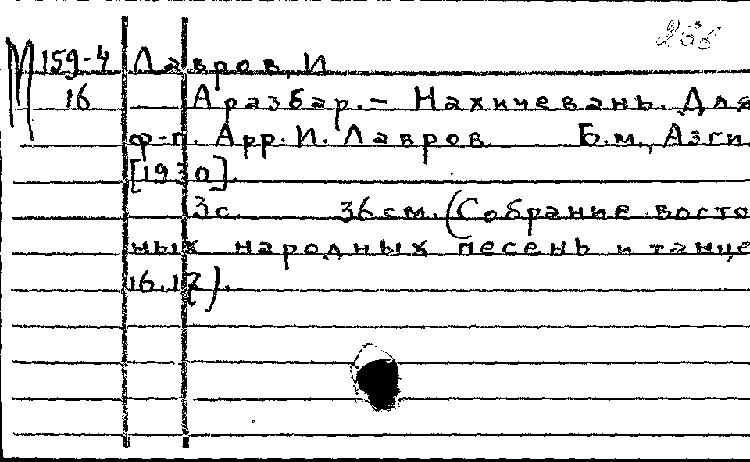 266
М 159-4 Лавров, И
16 Аразбар. – Нахичевань. Для
ф-п. Арр. И. Лавров Б.м., Азги
[1930].
3с. 36см. (Собрание восто
ных народных песень и танце
16.17).